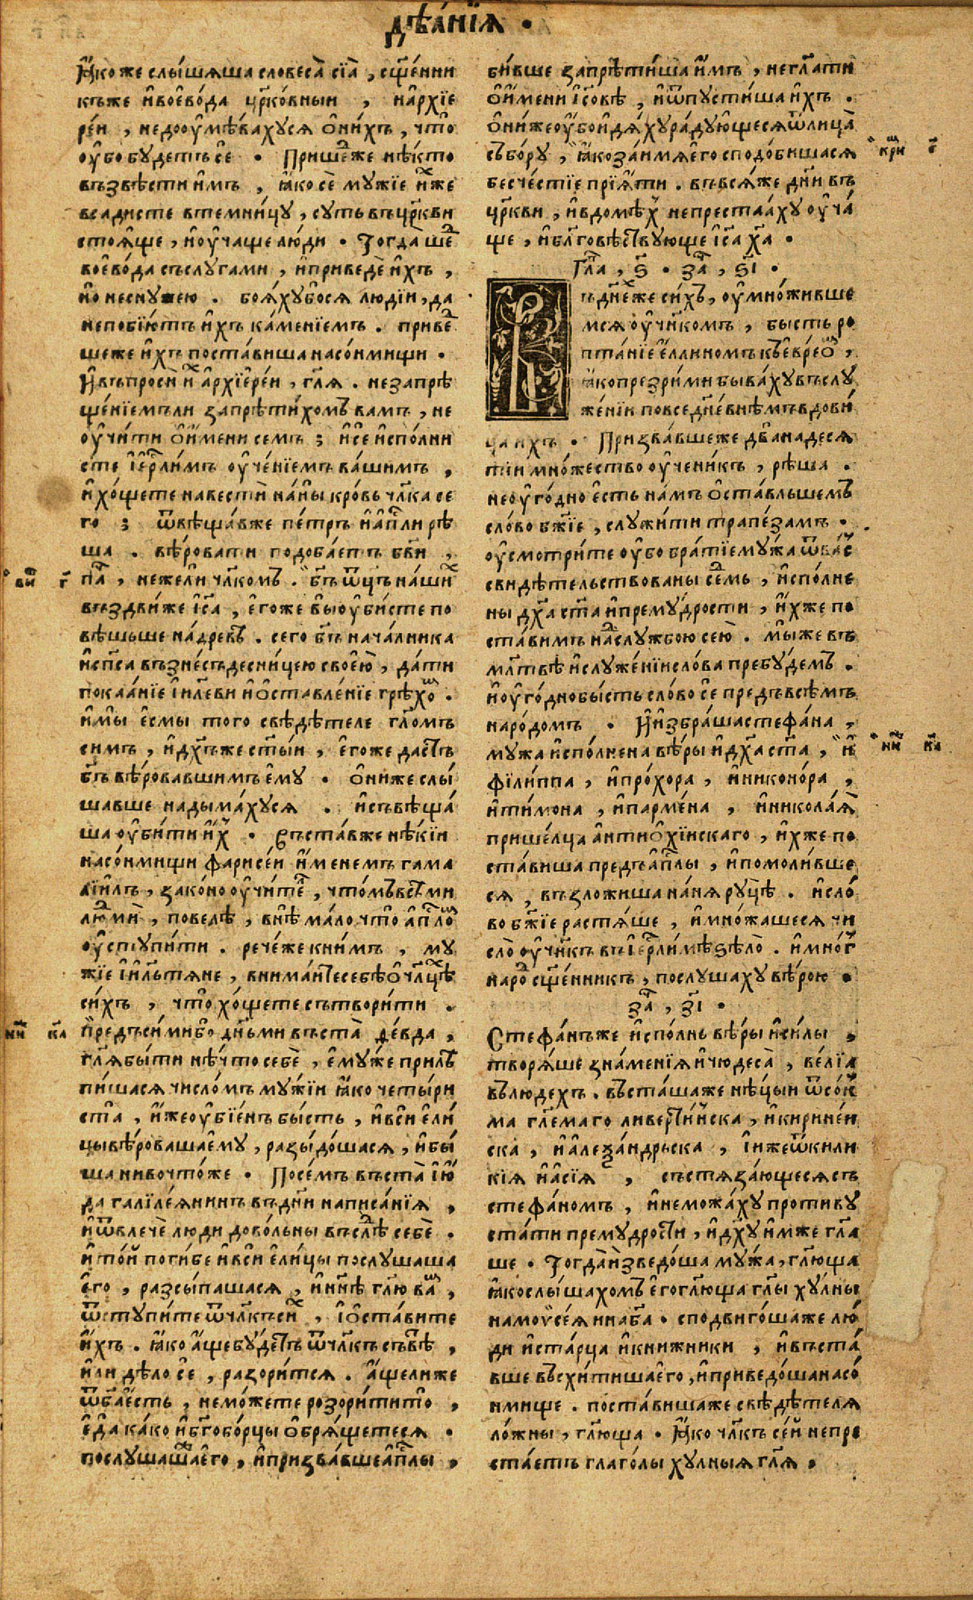 дѣа́нїѧ .
Ꙗ҆́коже слы́шѧша словеса̀ сїѧ̀ , сщ҃е́нни
къже и҆воево́да цр҃ко́вныи , и҆архїе
ре́и , недооумѣ́вахусѧ ѡ҆ни́хъ , что̀
оу҆бо бу́детъ се́ . Прише́дже нѣ́кто
възвѣсти и҆мъ , ꙗ҆ко сѐ му́жїе и҆́хже
всадисте втемни́цу , суть въцр҃кви
стоѧ́ще , и҆оу҆ча́ще лю́ди . Тогда̀ ше́д
воево́да съслуга́ми , и҆приведѐ и҆́хъ ,
но неснужею . боѧ́хубосѧ людїи , да
непобїю́тъ и҆́хъ ка́менїемъ . приве́д
шеже и҆́хъ поста́виша насо́нмищи .
И҆въпросѝ и҆́х а҆рхїере́и , гл҃ѧ . незапрѣ
ще́нїемъли запрѣти́хомъ ва́мъ , не
оу҆чи́ти ѡ҆и҆мени семъ ; и҆се и҆спо́лни
сте і҆ер҃ли́мъ оу҆че́нїемъ ва́шимъ ,
и҆ хо́щете навестѝ на́ны кро́вь чл҃ка се
го ; ѿвѣща́вже пе́тръ и҆ап҃ли рѣ́
ша . вѣ́ровати подоба́етъ бг҃ви ,
па́ , нежели чл҃комъ . бг҃ъ ѿц҃ъ на́ши́х
въздви́же і҆с҃а , е҆го́же вы оу҆би́сте по
вѣ́шьше надре́вѣ . сего бг҃ъ нача́лника
и҆сп҃са възне́съ десни́цею свое́ю , да́ти
покаа́нїе і҆и҃леви и҆ѡ҆ставле́нїе грѣхо́в .
и҆мы̀ е҆смы̀ того свѣдѣ́теле гл҃омъ
симъ , и҆дх҃ъже ст҃ыи , е҆го́же да́стъ
бг҃ъ вѣ́ровавшимъ е҆му . ѡ҆ни́же слы́
шавше надыма́хусѧ . и҆съвѣща́
ша оу҆би́ти и҆́х . Въста́вже нѣ́кїи
насо́нмищи фарисе́и и҆́менемъ гама
лїи́лъ , зако́но оу҆чи́тель , что́мъвсѣ́ми
людмѝ , повелѣ̀ , внѣ̀ ма́ло что̀ а҆п҃ло́м
оу҆ступи́ти . рече́же кни́мъ , му
жїе і҆и҃льтѧне , внима́ите себѣ̀ ѡ҆ чл҃цѣ́х
си́хъ , что̀ хо́щете сътвори́ти .
Предъси́мибо дн҃ьми въста̀ ѳе́вда ,
гл҃ѧбы́ти нѣ́что себѐ , е҆му́же прилѣ
пи́шасѧ число́мъ му́жїи ꙗ҆ко четы́ри
ста , и҆́же оу҆бїе́нъ бы́сть , и҆вси е҆ли́
цы вѣ́ровашаему , разыдо́шасѧ , и҆бы́
ша нивочто́же . Посе́мъ въста̀ і҆ю́
да галїле́ѧнинъ въдн҃и написа́нїѧ ,
и҆ѿвлечѐ люди дово́льны въслѣ́д себѐ .
и҆ то́и поги́бе и҆вси е҆ли́цы послушаша
е҆го̀ , разсы́пашасѧ , и҆нн҃ѣ гл҃ю ва́м ,
ѿступи́те ѿчл҃къси́х , і҆ѡ҆ста́вите
и҆́хъ . ꙗ҆ко а҆́ще бу́детъ ѿчл҃къ съвѣ́т ,
и҆ли дѣ́ло се , разори́тсѧ . а҆щели́же
ѿбг҃а е҆сть , немо́жете розори́тито̀ ,
е҆да ка́ко и҆бг҃обо́рцы ѡ҆брѧ́щетесѧ .
послушашаже е҆го , и҆призва́вшеап҃лы ,
би́вше запрѣти́ша и҆́мъ , негл҃ати
ѡ҆и҆мени і҆с҃овѣ , и҆ѿпусти́ша и҆́хъ .
ѡ҆ни́же оу҆бо и҆дѧ́ху ра́дующесѧ ѿлица̀
събо́ру , ꙗ҆ко за́имѧ е҆го сподо́бишасѧ
бесче́стїе прїѧ́ти . въвсѧ́же дн҃и въ
цр҃кви , и҆вдомѣ́х непреста́аху оу҆ча́
ще , и҆бл҃говѣ́ствующе і҆с҃а х҃а .
Гла , ѕ҃ . за , ѕ҃і .
Въдн҃е́же си́хъ , оу҆мно́жившe
мсѧ оу҆чн҃ко́мъ , бысть ро
пта́нїе е҆́ллиномъ къ евре́ом ,
ꙗ҆ко презри́ми быва́ху въслу
же́нїи повседне́внѣмъ вдови́
ца и҆́хъ . Призва́вшеже два на́десѧ
тїи мно́жество оу҆чени́къ , рѣ́ша .
неоу҆го́дно е҆сть на́мъ ѡ҆ста́вльшемъ
сло́во бж҃їе , служи́ти трапе́замъ .
оу҆смотри́те оу҆бо бра́тїе му́жа ѿва́с
свидѣ́тельствованы се́дмь , и҆спо́лне
ны дх҃а ст҃а и҆прему́дрости , и҆́хже по
ста́вимъ надслу́жбою се́ю . мы́же въ
мл҃твѣ и҆служе́нїи сло́ва пребу́демъ .
и҆оу҆го́дно бы́сть сло́во сѐ предъ всѣ́мъ
наро́домъ . И҆избра́ша стефа́на ,
мужа и҆спо́лнена вѣ́ры и҆дх҃а ст҃а , и҆
фїли́ппа , и҆про́хора , и҆никоно́ра ,
и҆ти́мона , и҆парме́на , и҆никола́ѧ
прише́лца а҆нтиѻхі́искаго , и҆́хже по
ста́виша предъ а҆п҃лы , и҆помоли́вше
сѧ , възложи́ша на́нѧ ру́цѣ . и҆сло́
во бж҃їе растѧ́ше , и҆мно́жашесѧ чи
сло̀ оу҆чн҃къ въ і҆ер҃ли́мѣ ѕѣло̀ . и҆мно́г
наро́д сщ҃е́нникъ , послу́шаху вѣ́рою .
за , з҃і .
Стефа́нъже и҆спо́лнь вѣ́ры и҆си́лы ,
творѧ́ше зна́менїѧ и҆чюдеса̀ , ве́лїѧ
влю́дехъ . въста́шаже нѣ́цыи ѿсо́н
ма гл҃емаго ливерти́иска , и҆кирине́и
ска , и҆а҆леѯа́ндрьска , і҆и́же ѿкили
кїѧ и҆а҆сі́ѧ , сътѧза́ющесѧ съ
стефа́номъ , и҆немо́жаху противу
ста́ти прему́дрости , и҆дх҃у и҆мже гл҃а
ше . Тогда̀ и҆зведо́ша му́жа , гл҃юща
ꙗ҆ко слы́шахомъ е҆го гл҃юща гл҃ы ху́лны
намоѷсе́ѧ и҆наб҃а . сподвиго́шаже лю́
ди и҆ста́рца и҆кни́жники , и҆въста́
вше въсхи́тишае҆го , и҆приведо́ша насо́
нмище . поста́вишаже свѣдѣ́телѧ
ло́жны , гл҃юща . Ꙗ҆́ко чл҃къ се́и непре
ста́етъ глаго́лы ху́лныѧ гл҃ѧ .